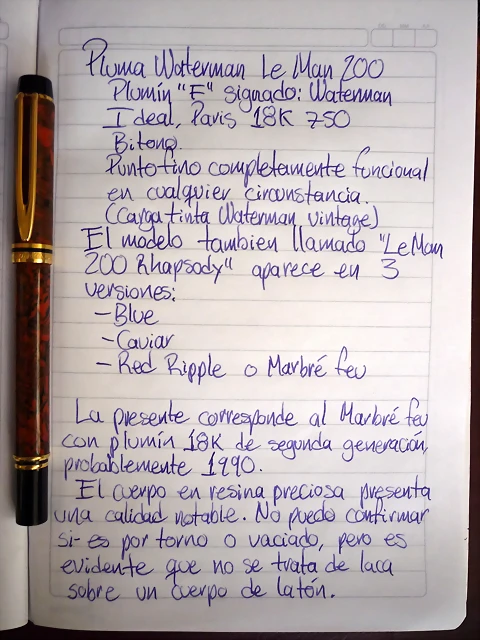 Pluma Waterman Le Man 200
Plumín "E" signado: Waterman
Ideal, Paris 18K 750
Bitono.
Punto fino completamente funcional
en cualquier circunstancia.
(Carga tinta Waterman vintage)
El modelo tambien llamado "Le Man
200 Rhapsody" aparece en 3
versiones:
- Blue
- Caviar
- Red Ripple o Marbré feu
La presente corresponde al Marbré feu
con plumín 18K de segunda generación,
probablemente 1990.
El cuerpo en resina preciosa presenta
una calidad notable. No puedo confirmar
si es por torno o vaciado, pero es
evidente que no se trata de laca
sobre un cuerpo de latón.